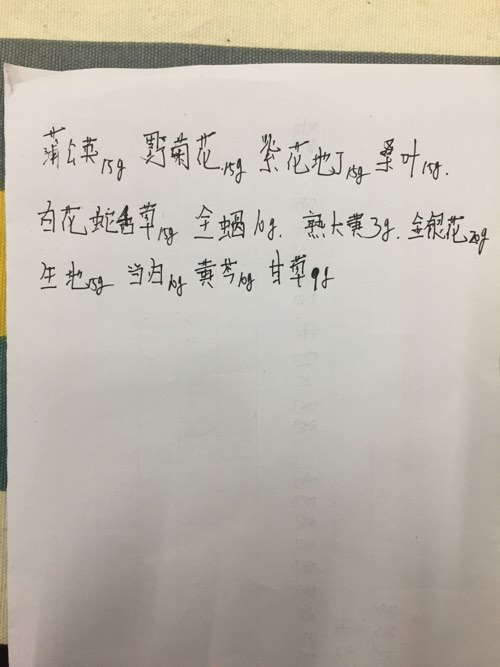 蒲公英15g 野菊花15g 紫花地丁15g 桑叶15g.
白花蛇舌草15g 全蝎10g. 熟大黄3g. 金银花20g
生地15g 当归10g 黄芩10g 甘草9g